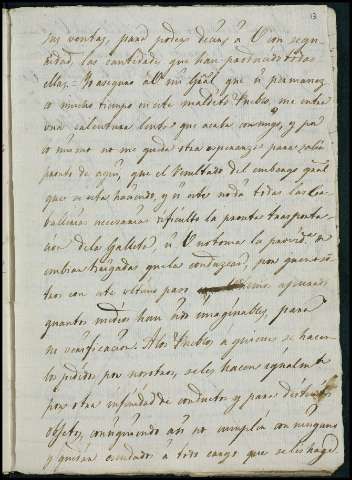 13
sus ventas, para poder decir a V con segu-
ridad las cantidades que han producido todas
ellas. = Yo aseguro a V mi Gral que si permanez
co mucho tiempo en este maldito Pueblo, me entra
una calentura lenta que acaba conmigo, y por
lo mismo no me queda otra esperanza para salir
pronto de aqui, que el resultado del embargo gral
que se esta haciendo, y si este no dá todas las ca
ballerias necesarias dificulto la pronta trasporta-
cion de la Galleta, si V no toma la provid.ª de
embiar brigadas que la conduzcan, por que noso
tros con este ultimo paso apurado
quantos medios han sido imaginables, para
su verificacion. A los Pueblos á quienes se hacen
los pedidos por nosotros, se les hacen igualm.te
por otra infinidad de conductos y para distintos
objetos, consiguiendo asi no cumplir con ninguno
y quedar escudados á todo cargo que se les haga